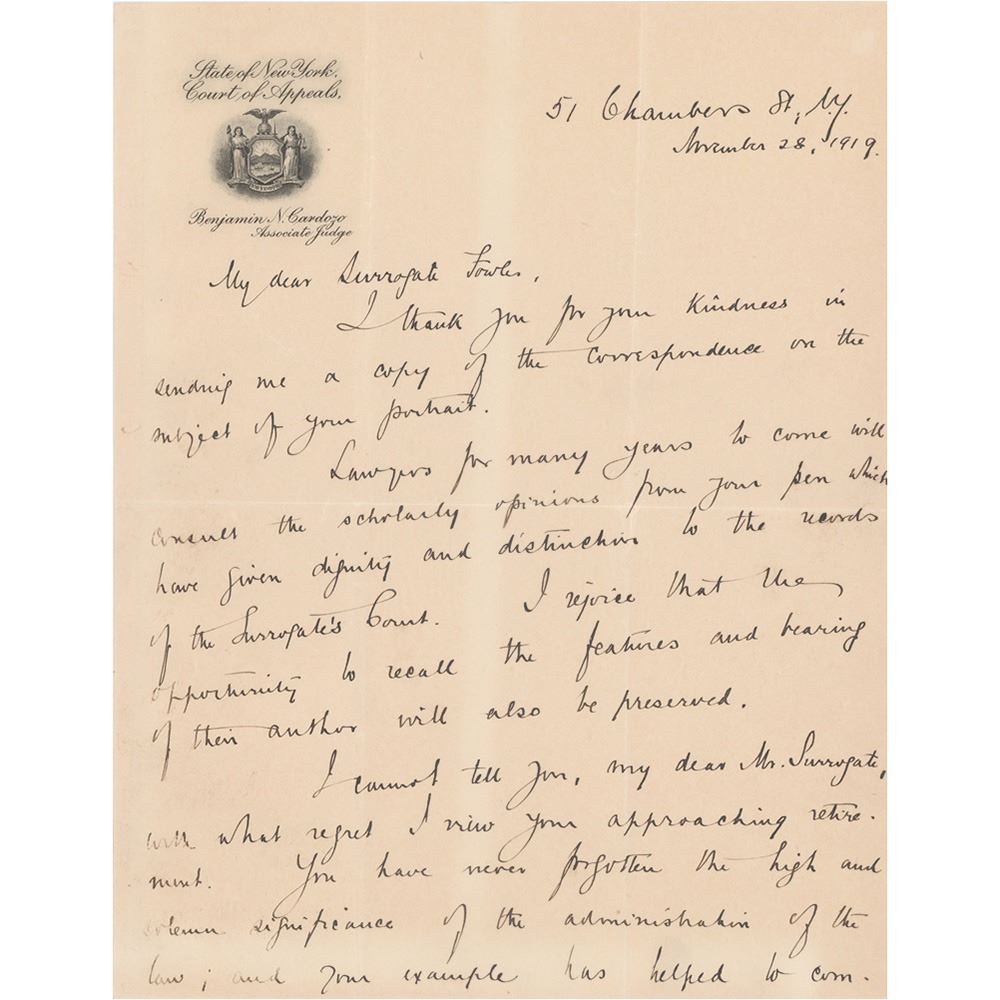 State of New York,
Court of Appeals,
Benjamin N. Cardozo
Associate Judge
51 Chambers St., N.Y.
November 28, 1919.
My dear Surrogate Fowler,
I thank you for your kindness in
sending me a copy of the correspondence on the
subject of your portrait.
Lawyers for many years to come will
consult the scholarly opinions from your pen which
have given dignity and distinction to the records
of the Surrogate's Court. I rejoice that the
opportunity to recall the features and bearing
of their author will also be preserved.
I cannot tell you, my dear Mr. Surrogate,
with what regret I view your approaching retire-
ment. You have never forgotten the high and
solemn significance of the administration of the
law; and your example has helped to com-